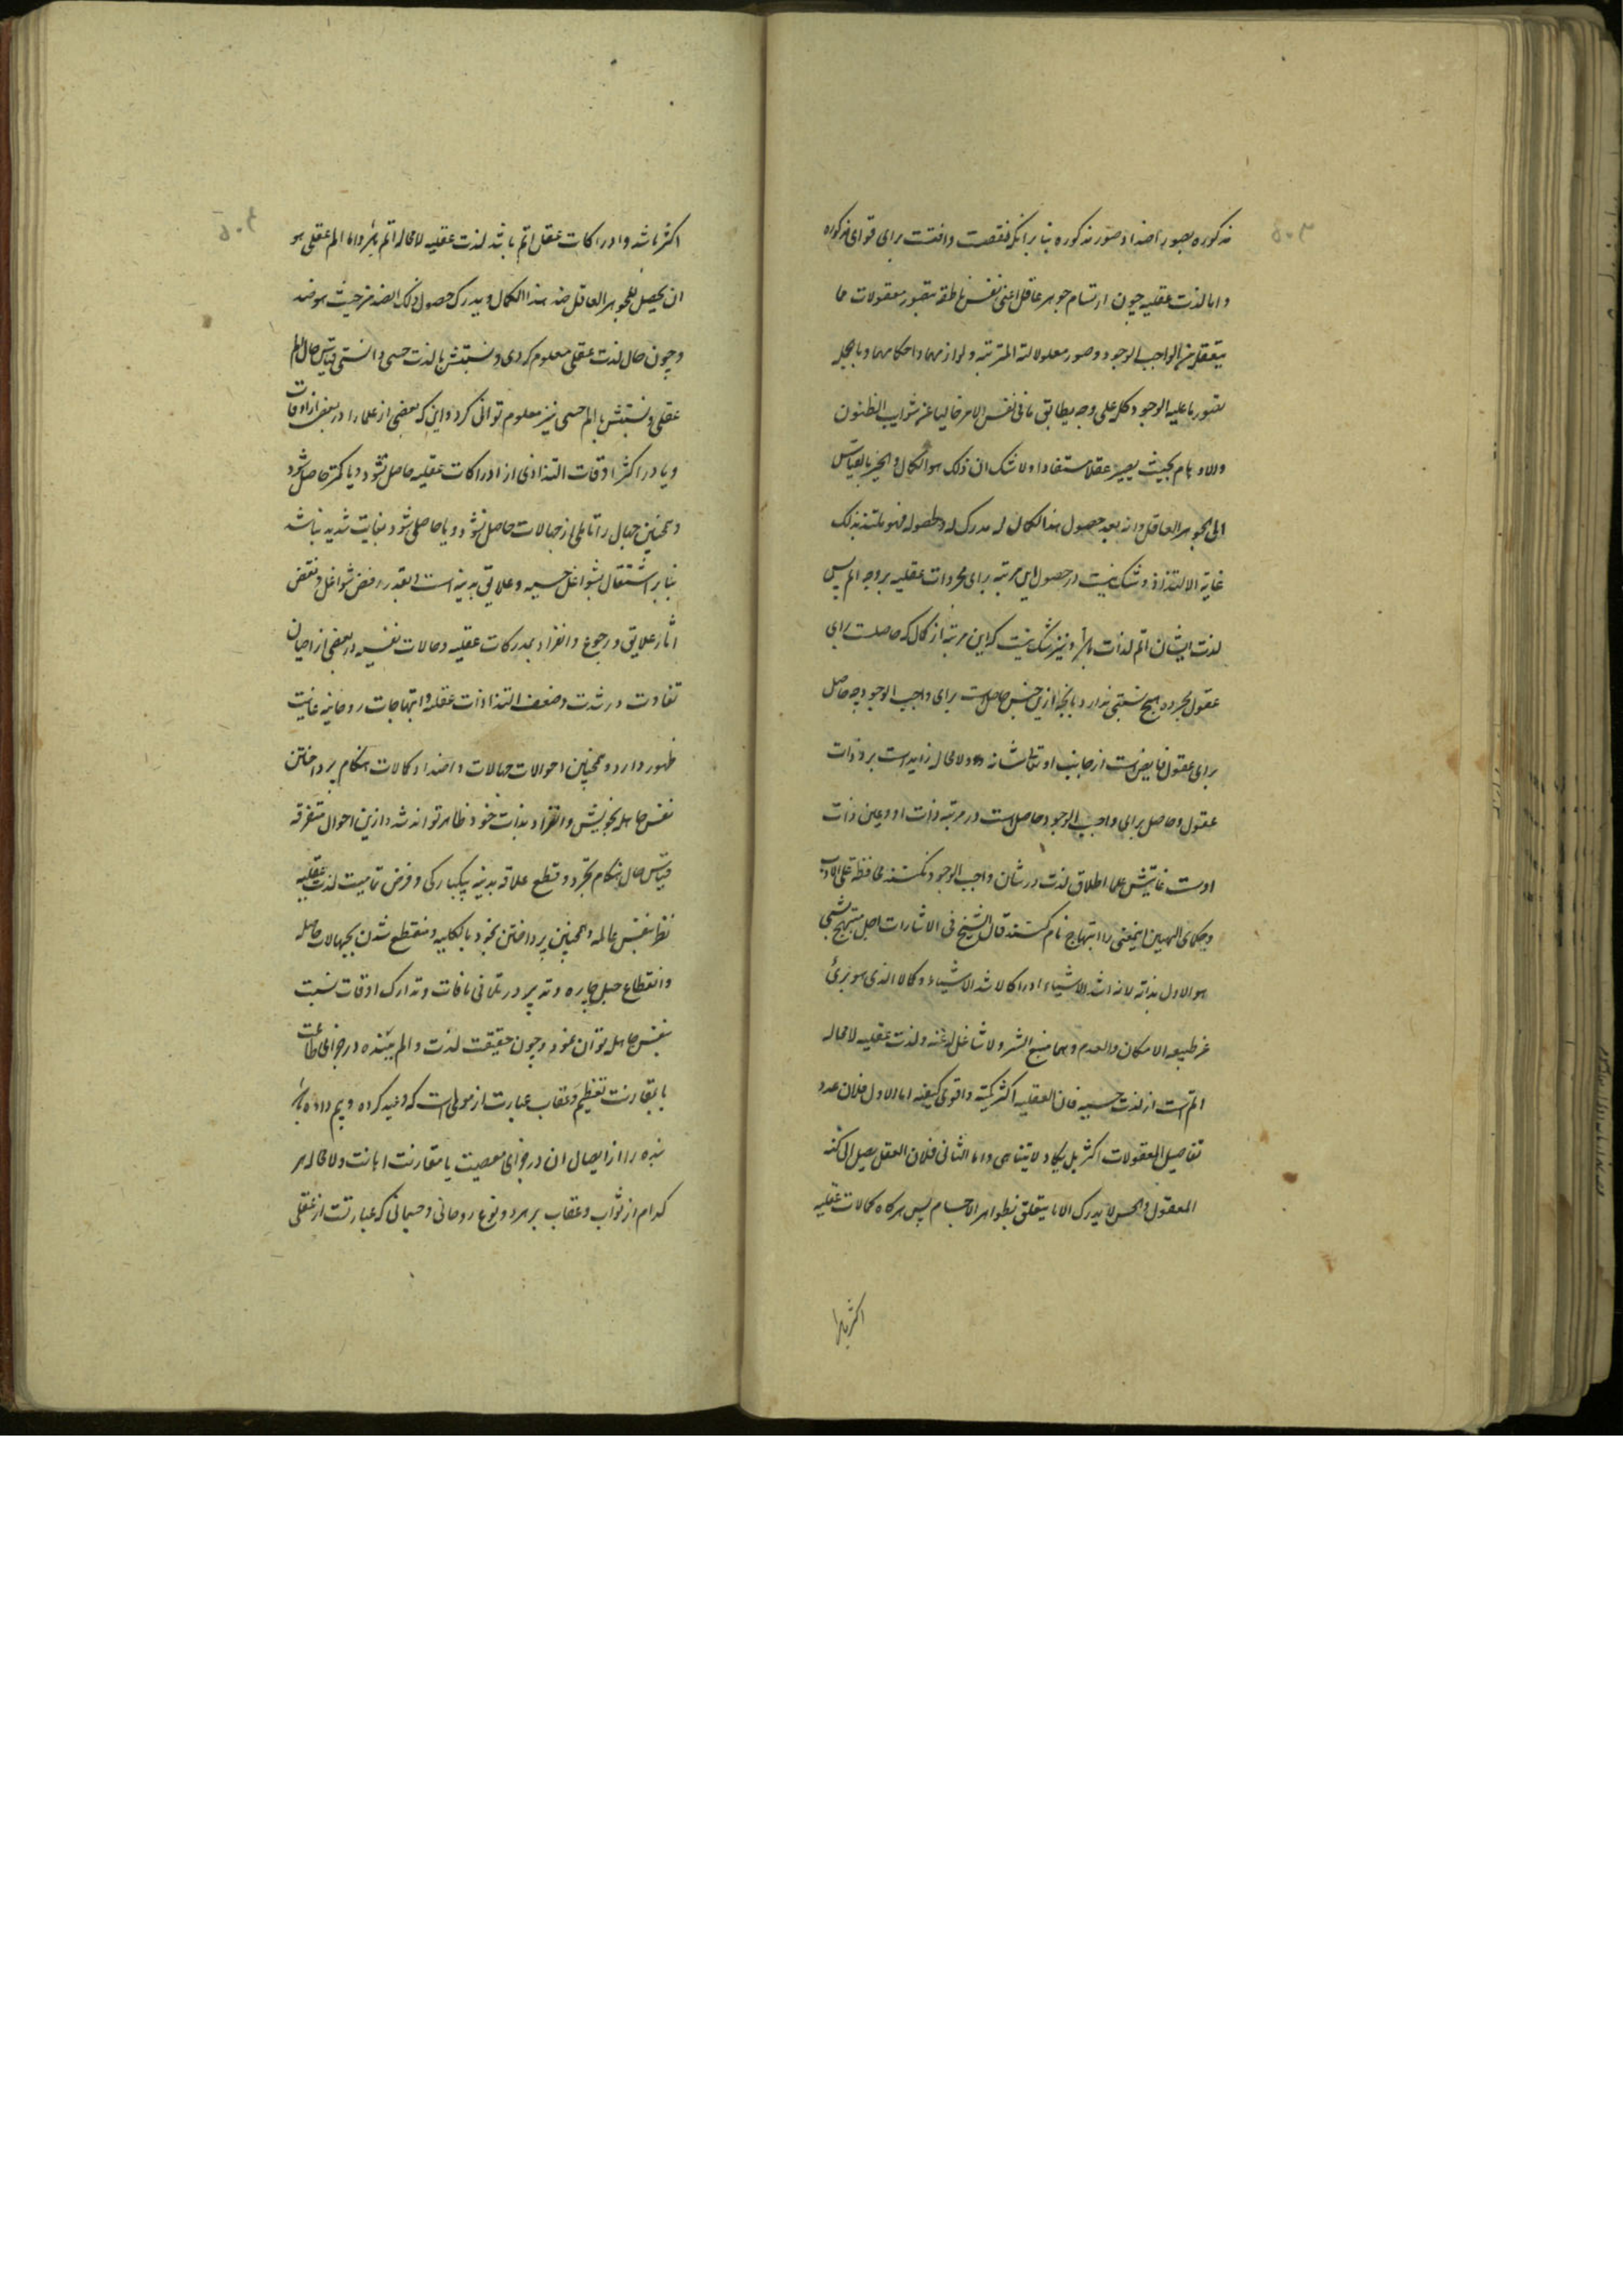 مذکوره بصور اضداد صور مذکوره بنا برانکه نقصت وافتت برای قوای مذکوره
واما لذت عقلیه چون ارتسام جوهر عاقل اعنی نفس ناطقه بتصور معقولات مما
یتعقل من الواجب الوجود وصور معلولاته المترتبه ولوازمهما واحکامهما وبالجمله
تصور ما علیه الوجود کله علی وجه یطابق ما فی نفس الامر خالیا عن شوایب الظنون
والاوهام بحیث یصیر عقلا مستفادا ولا شک ان ذلک هو الکمال والخیر بالقیاس
الی الجوهر العاقل وانه بعد حصول هذا الکمال له مدرک له ولحصوله فهو ملتذ بذلک
غایة الالتذاذ وشک نیست در حصول این مرتبه برای مجردات عقلیه بر وجه اتم پس
لذت ایشان اتم لذات باشد ونیز شک نیست که این مرتبه از کمال که حاصلست برای
عقول مجرده هیچ نسبتی ندارد بانچه ازین جنس حاصلست برای واجب الوجود چه حاصل
برای عقول فایض است از جانب او تعالی شانه ولا محاله زاید است بر ذوات
عقول وحاصل برای واجب الوجود حاصل است در مرتبه ذات او وعین ذات
اوست غایتش علما اطلاق لذت در شان واجب الوجود نکنند محافظة علی الادب
وحکمای الهیین اینمعنی را ابتهاج نام کنند قال الشیخ فی الاشارات اجل مبتهج بشیء
هو الاول بذاته لانه اشد الاشیاء ادراکا لاشد الاشیاء کمالا الذی هو بریء
عن طبیعه الامکان والعدم وهما منبع الشر ولا شاغل له عنه ولذت عقلیه لا محاله
اتم است از لذت حسیه فان العقلیه اکثر کمیة واقوی کیفیه اما الاول فلان عدد
تفاصیل المعقولات اکثر بل یکاد لا یتناهی واما الثانی فلان العقل یصل الی کنه
المعقول والحس لا یدرک الا ما یتعلق بظواهر الاجسام پس هرکاه کمالات عقلیه
اکثر باشد وادراکات عقل اتم باشد لذت عقلیه لا محاله اتم باشد واما الم عقلی هو
ان یحصل للجوهر العاقل ضد هذا الکمال ویدرک حصول ذلک الضد من حیث هو ضد
وچون حال لذت عقلی معلوم کردی ونسبتش با لذت حسی دانستی قیاس حال الم
عقلی ونسبتش با الم حسی نیز معلوم توانی کرد واین که بعضی از علما را در بعض از اوقات
ویا در اکثر اوقات التذاذی از ادراکات عقلیه حاصل نشود ویا کمتر حاصل شود
وهمچنین جهال را تالمی از جهالات حاصل نشود ویا حاصل شود بغایت شدید نباشد
بنا بر اشتغال بشواغل حسیه وعلایق بدنیه است وبقدر رفض شواغل ونقض
اثار علایق ورجوع وانفراد بمدرکات عقلیه وحالات نفسیه در بعضی از احیان
تفاوت در شدت وضعف التذاذات عقلیه وابتهاجات روحانیه غایت
ظهور دارد وهمچنین احوالات جهالات واضداد کمالات هنکام پرداختن
نفس جاهله بخویش وانفراد بذات خود ظاهر تواند شد وازین احوال متفرقه
قیاس حال هنکام تجرد وقطع علاقه بدنیه بیکبارکی وفرض تمامیت لذت عقلیه
نظر بنفس عالمه وهمچنین پرداختن بخود بالکلیه ومنقطع شدن بجهالات حاصله
وانقطاع حبل چاره وتدبیر در تلافی مافات وتدارک اوقات نسبت
بنفس جاهله توان نمود وچون حقیقت لذت والم بنده در جزای طاعت
با مقارنت تعظیم وعقاب عبارت از مولمی است که وعید کرده وبیم داده باشد
بنده را از ایصال ان در جزای معصیت با مقارنت اهانت ولا محاله هر
کدام از ثواب وعقاب بر هر دو نوع روحانی وجسمانی که عبارتست از عقلی